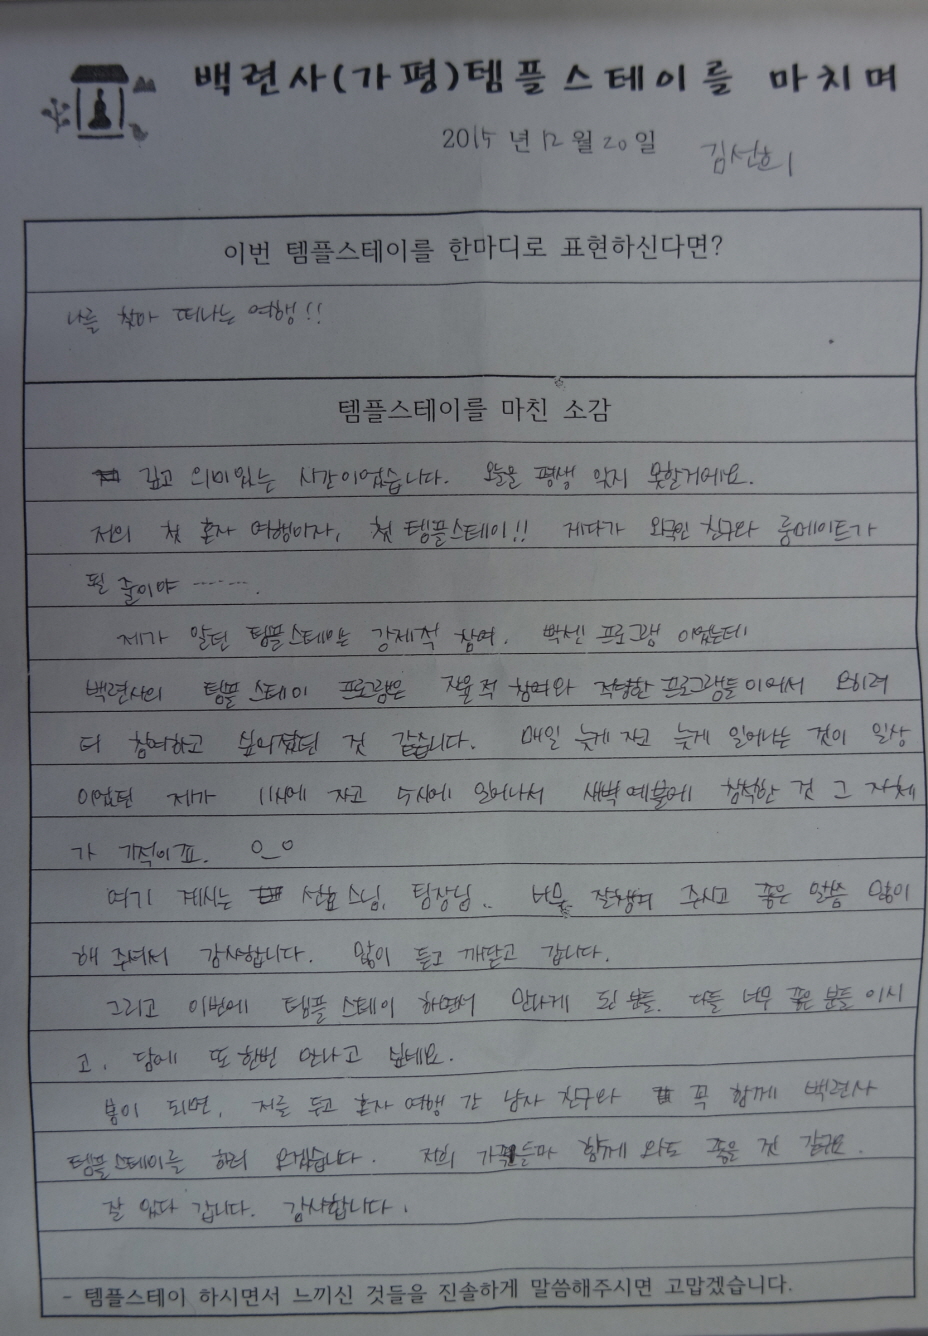 백련사(가평)템플스테이를 마치며
2015년 12월 20일 김선희
이번 템플스테이를 한마디로 표현하신다면?
나를 찾아 떠나는 여행!!
템플스테이를 마친 소감
깊고 의미있는 시간이었습니다. 오늘은 평생 잊지 못할거에요.
저의 첫 혼자 여행이자, 첫 템플스테이!! 게다가 외국인 친구와 룸메이트가
될 줄이야 ........
제가 알던 템플스테이는 강제적 참여. 빡센 프로그램 이었는데
백련사의 템플스테이 프로그램은 자율적 참여와 적당한 프로그램들이어서 오히려
더 참여하고 싶어졌던 것 같습니다. 매일 늦게 자고 늦게 일어나는 것이 일상
이었던 제가 11시에 자고 5시에 일어나서 새벽예불에 참석한 것 그 자체
가 기적이죠. o_o
여기 계시는 선효스님, 팀장님.. 너무 잘챙겨 주시고 좋은 말씀 많이
해 주셔서 감사합니다. 많이 듣고 깨닫고 갑니다.
그리고 이번에 템플스테이 하면서 만나게 된 분들. 다들 너무 좋은 분들이시
고, 담에 또 한번 만나고 싶네요.
봄이 되면, 저를 두고 혼자 여행 간 남자 친구와 꼭 함께 백련사
템플스테이를 하러 오겠습니다. 저희 가족들과 함께 와도 좋을 것 같구요.
잘 있다 갑니다. 감사합니다.
- 템플스테이 하시면서 느끼신 것들을 진솔하게 말씀해주시면 고맙겠습니다.